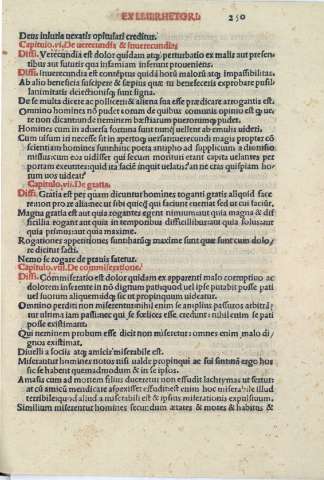 EX LI. II. RHETORI.
250
Deus iniuria uexatis opitulari creditur.
Capitulo. vi. De uerecundia & inuerecundia
Diffi. Verecundia est dolor quidam atq; perturbatio ex malis aut presen
tibus aut futuris quæ infamiam inferant prouenienes.
Diffi. Inuerecundia est contēptus quidā horū malorū atq; impassibilitas.
Ab alio beneficia suscipere & sæpius quæ tu beneficeris exprobare pusil-
lanimitatis deiectionisq; sunt signa.
De se multa dicere ac polliceri & aliena sua esse prædicare arrogantia est.
Omnino homines nō pudet eorum de quibus communis opinio est q; ue
re non dicantur de nemine bestiarum puerorumq; pudet.
Homines cum in aduersa fortuna sunt nunq; uellent ab emulis uideri.
conscientiam homines
portam exeuntes: quid ita faciē inquit uelatis? an ne cras quispiam ho-
rum uos uideat?
Capitulo. vii. De gratia.
Diffi. Gratia est per quam dicuntur homines roganti gratis aliquid face
re non pro re aliena: ut sibi quicq; qui faciunt eueniat sed ut cui faciūt.
Magna gratia est aut quia rogantes egent nimium aut quia magna & dif
ficilia rogant aut quia in temporibus difficilibus aut quia solus aut
quia primus aut quia maxime.
Rogationes appetitiones sunt harūq; maxime sunt quæ sunt cum dolo-
re dicitur facti.
Nemo se rogare de prauis fatetur.
Capitulo. viii. De commiseratione.
Diffi. Commiseratio est dolor quidam ex apparenti malo corruptiuo ac
dolorem inferente in nō dignum pati: quod uel ipse putabit posse pati
uel suorum aliquem: idq; sic ut propinquum uideatur.
Omnino perditi non miserentur: nihil enim se amplius passuros arbitrā
tur ultima iam passi: nec qui se fœlices esse credunt: nihil enim se pati
posse existimant.
Qui neminem probum esse dicit non miseretur: omnes enim malo di-
gnos existimat.
Diuelli a sociis atq; amicis miserabile est.
Miserantur homines notos nisi ualde propinqui
sic se habent quemadmodum & in se ipsos.
Amasis cum ad mortem filius duceretur non effudit lachrymas ut fertur:
at cū amicū mendicare aspexisset effudit: est enim hoc miserabile illud
terribile: quod aliud a miserabili est & ipsius miserationis expulsiuum.
Similium miserentur homines secundum ætates & mores & habitus &